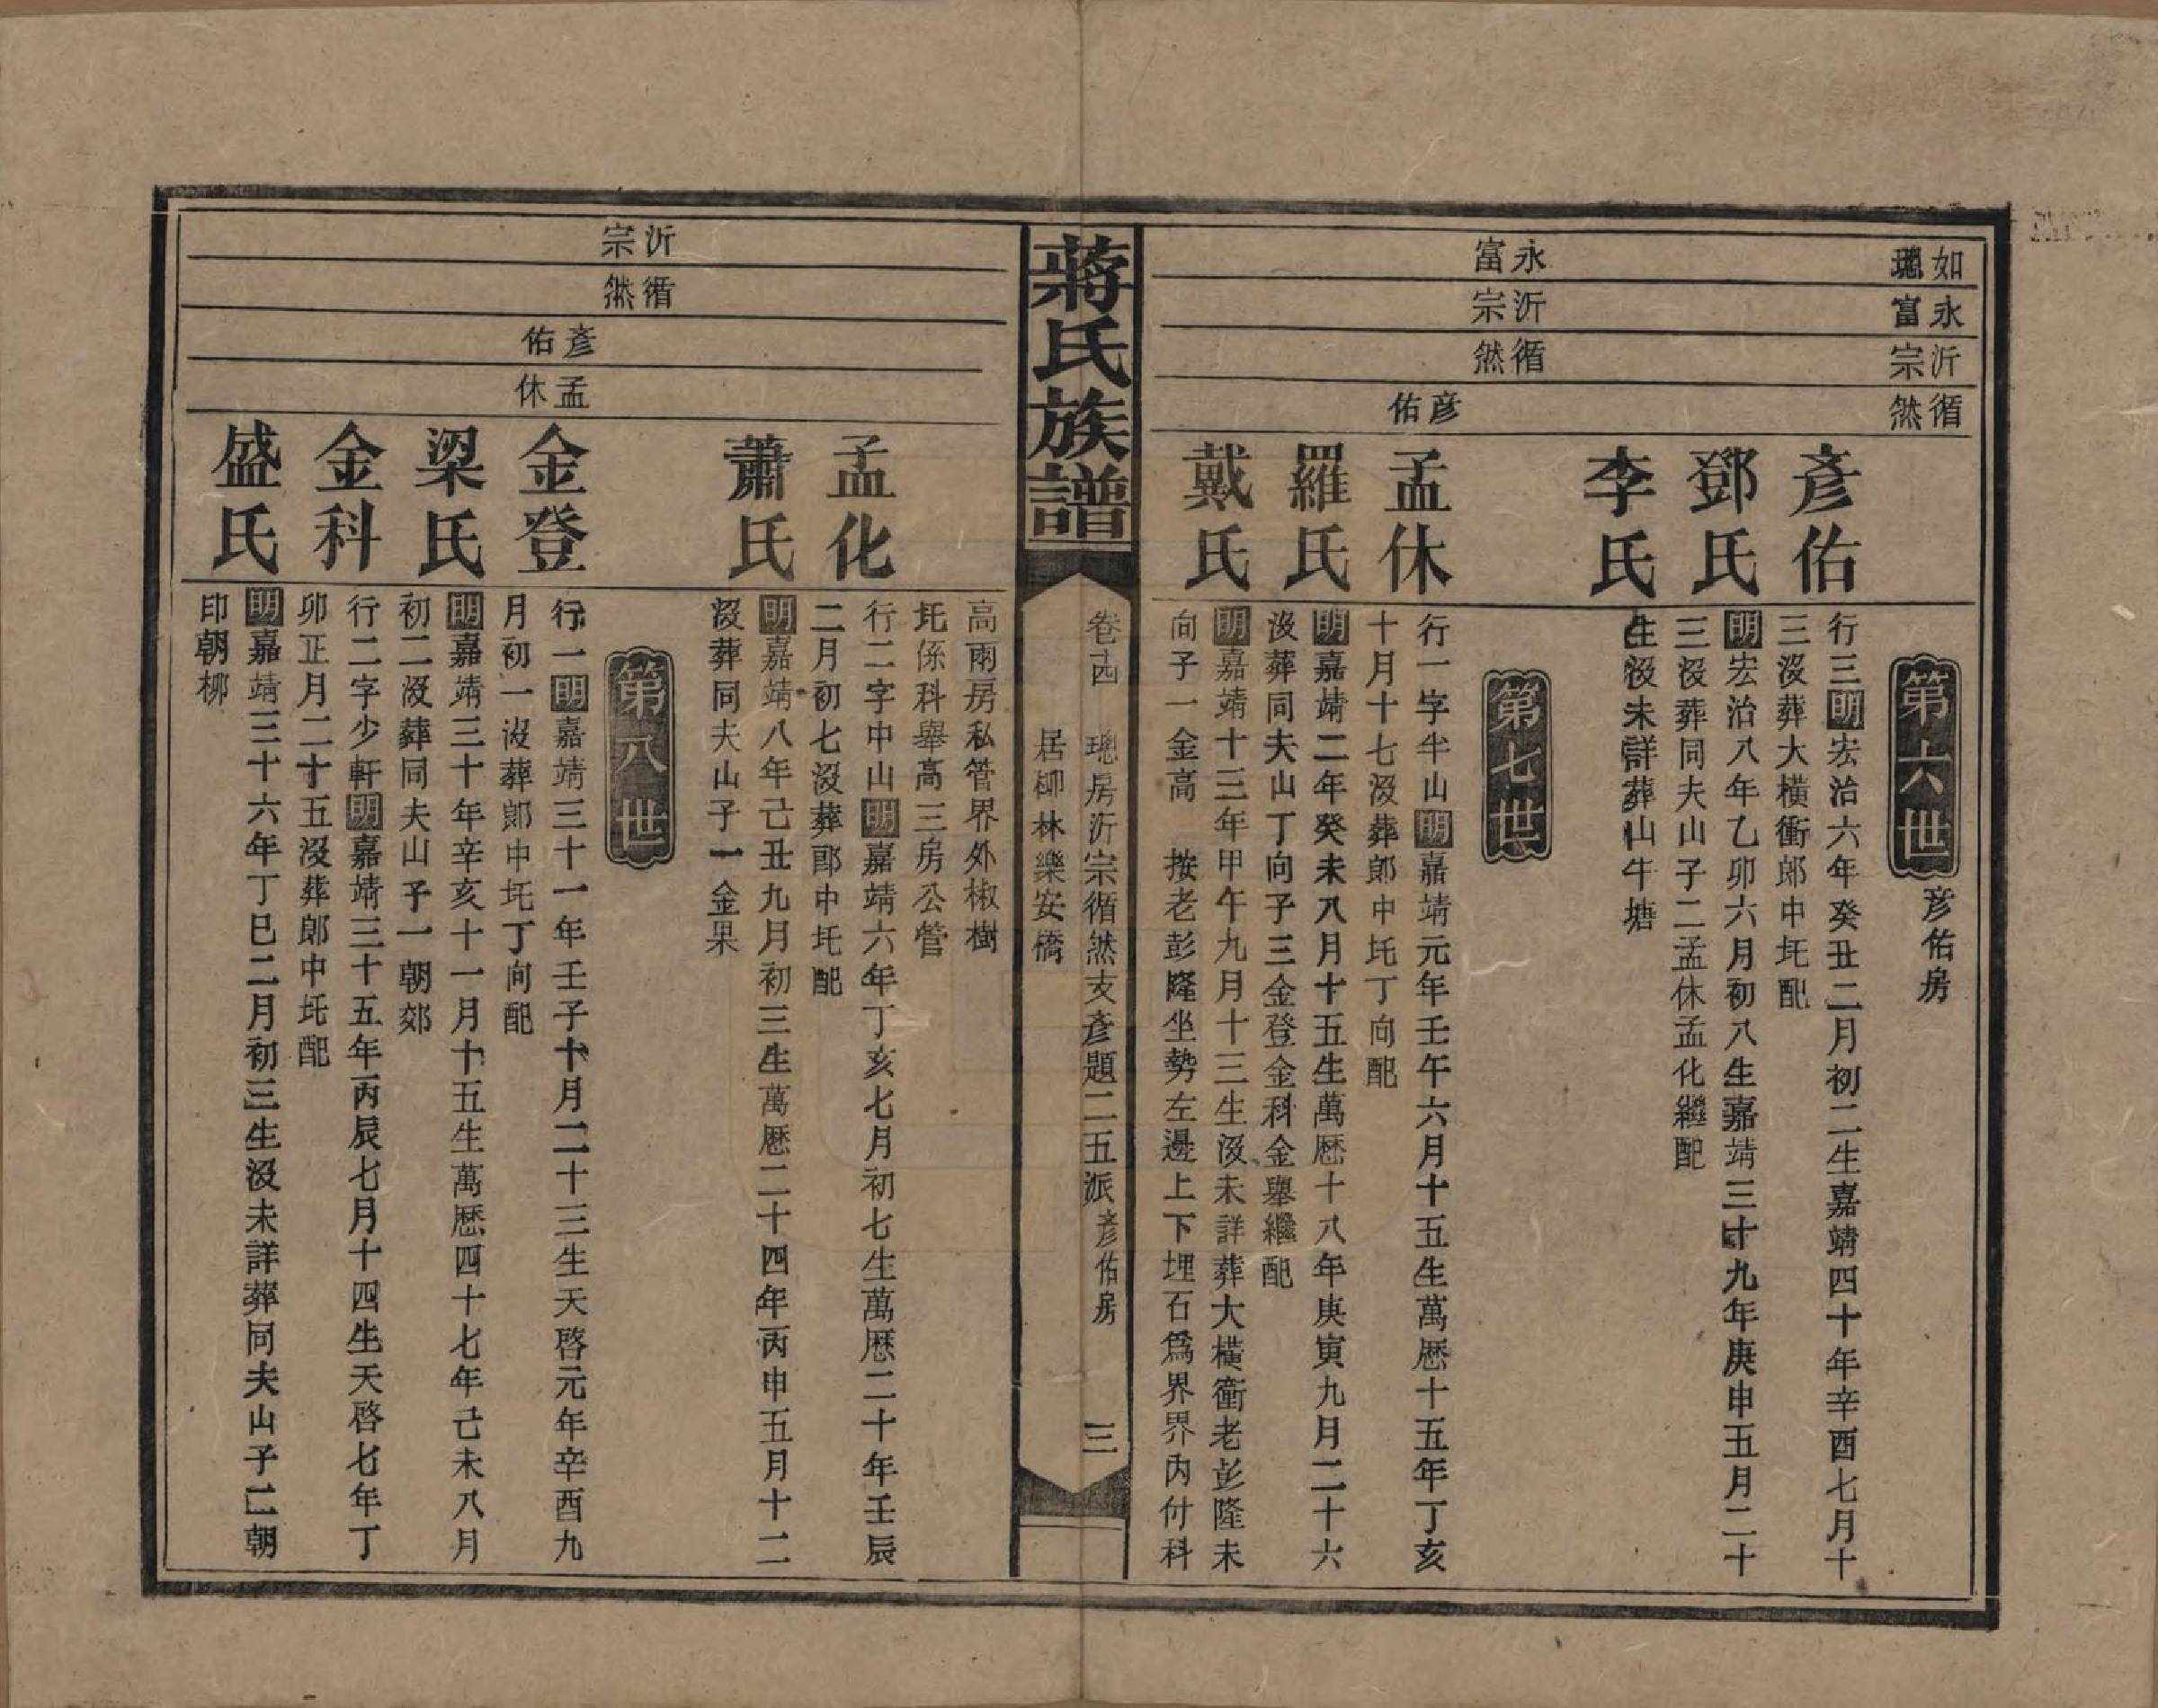 如璁
永富
沂宗
循然
第六世
彦佑房
彦佑
行三明宏治六年癸丑二月初二生嘉靖四十年辛酉七月十
三没葬大橫衝郎中圫配
鄧氏
明宏治八年乙卯六月初八生嘉靖三十九年庚申五月二十
三没葬同夫山子二孟休孟化繼配
李氏
生没未詳葬山牛塘
永富
沂宗
循然
彦佑
第七世
孟休
行一字半山明嘉靖元年壬午六月十五生萬厯十五年丁亥
十月十七没葬郎中圫丁向配
羅氏
明嘉靖二年癸未八月十五生萬厯十八年庚寅九月二十六
没葬同夫山丁向子三金登金科金舉繼配
戴氏
明嘉靖十三年甲午九月十三生没未詳葬大橫衝老彭隆未
向子一金高　按老彭隆坐勢左邊上下埋石爲界界內付科
蔣氏族譜
卷十四　璁房沂宗循然支彥題二五派彦佑房　三
居柳林樂安橋
高兩房私管界外椒樹
圫係科舉高三房公管
孟化
行二字中山明嘉靖六年丁亥七月初七生萬厯二十年壬辰
二月初七没葬郎中圫配
蕭氏
明嘉靖八年己丑九月初三生萬厯二十四年丙申五月十二
没葬同夫山子一金果
沂宗
循然
彦佑
孟休
第八世
金登
行一明嘉靖三十一年壬子十月二十三生天啓元年辛酉九
月初一没葬郎中圫丁向配
梁氏
明嘉靖三十年辛亥十一月十五生萬厯四十七年己未八月
初二没葬同夫山子一朝郊
金科
行二字少軒明嘉靖三十五年丙辰七月十四生天啓七年丁
卯正月二十五没葬郎中圫配
盛氏
明嘉靖三十六年丁巳二月初三生没未詳葬同夫山子二朝
印朝柳